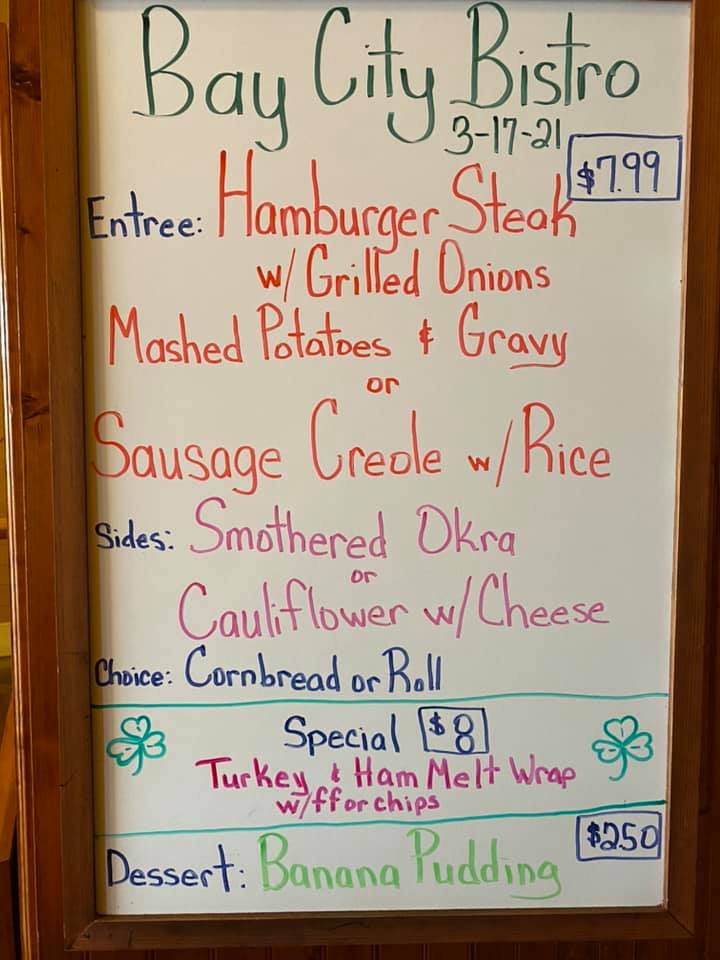 Bay City Bistro
3-17-21
$7.99
Entree: Hamburger Steak
w/ Grilled Onions
Mashed Potatoes & Gravy
or
Sausage Creole w/ Rice
Sides: Smothered Okra
or
Cauliflower w/ Cheese
Choice: Cornbread or Roll
Special $8
Turkey & Ham Melt Wrap
w/ff or chips
$250
Dessert: Banana Pudding